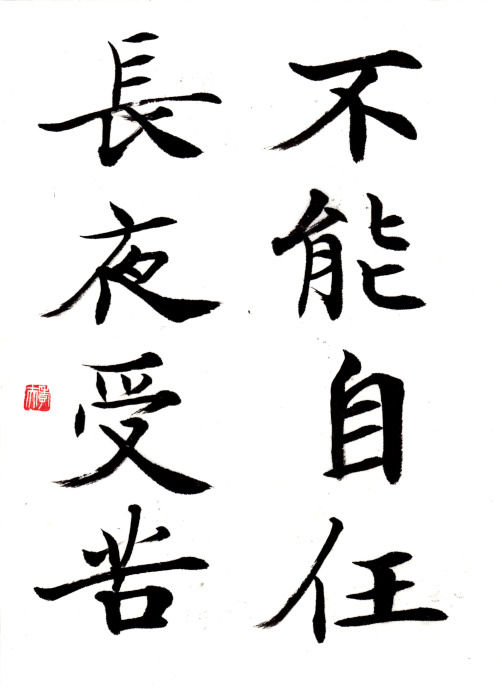 不能自任
長夜受苦